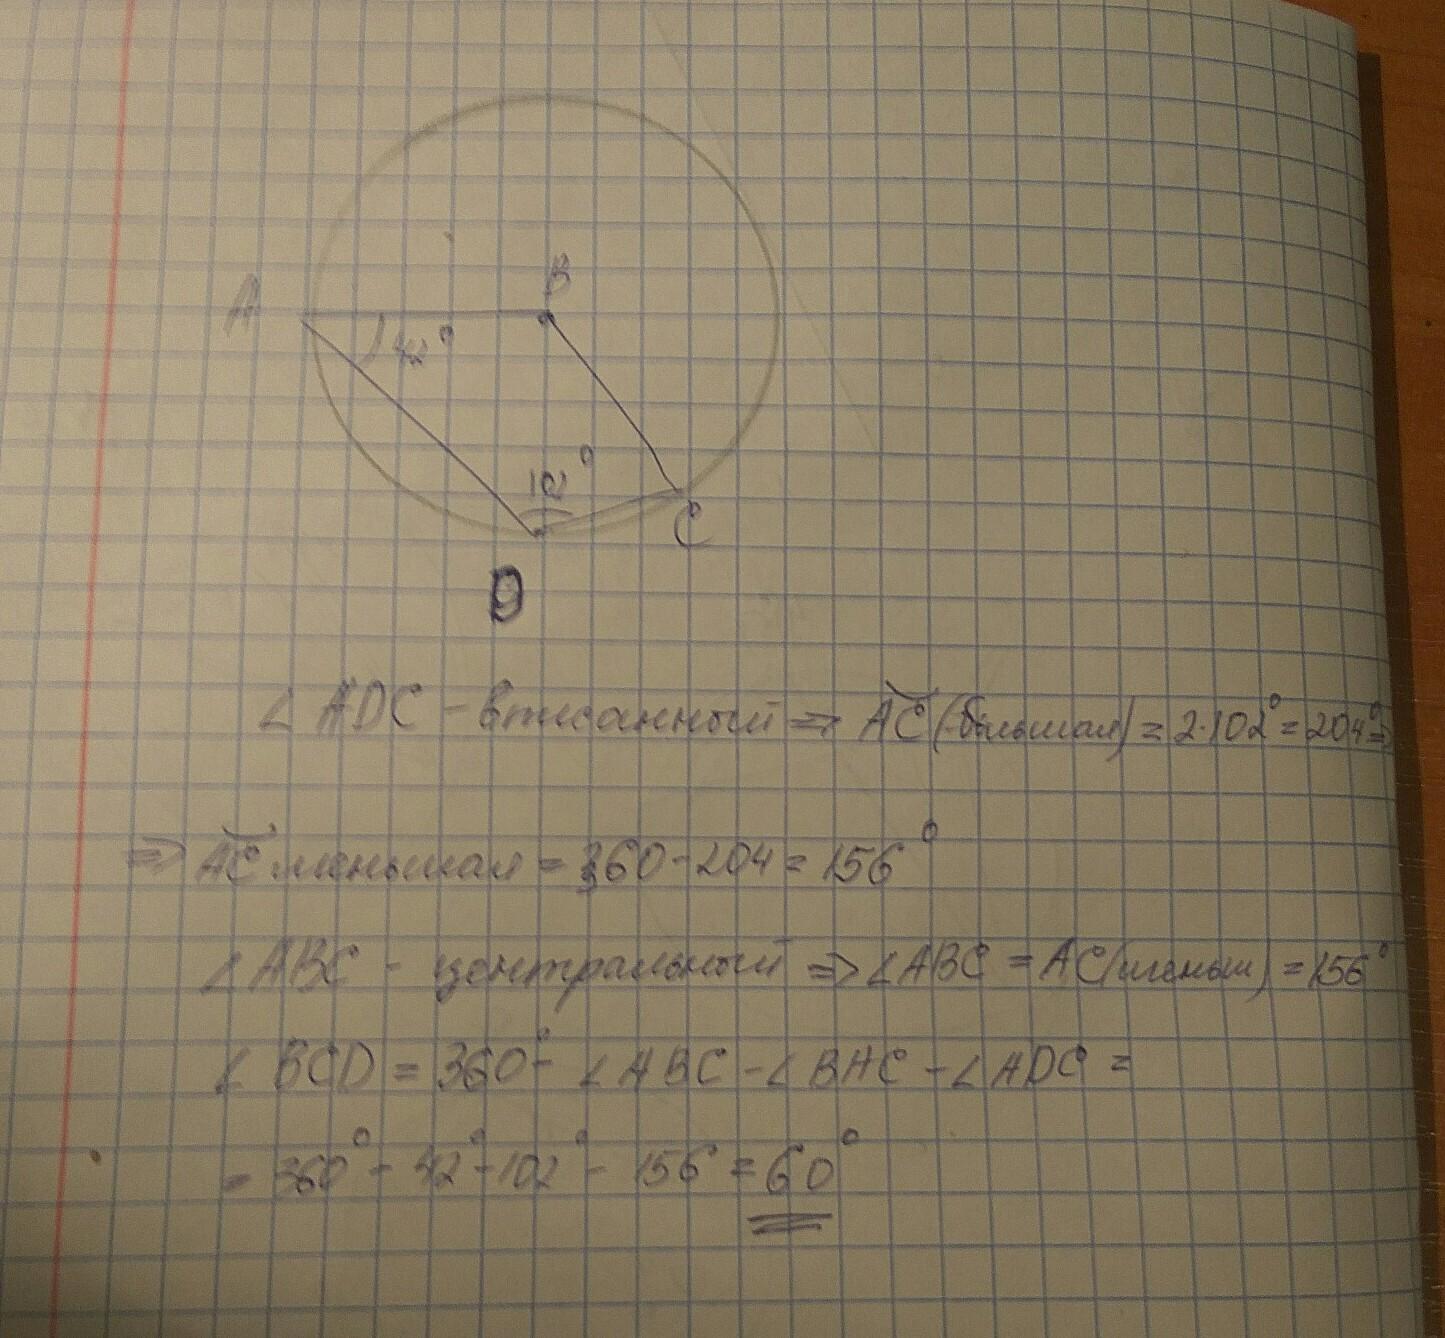 B
A
42°
102°
C
D
∠ ADC - вписанный ⇒ AC (большая) = 2·102° = 204° ⇒
⇒ AC меньшая = 360 - 204 = 156°
∠ ABC - центральный ⇒ ∠ ABC = AC (меньш) = 156°
∠ BCD = 360° - ∠ ABC - ∠ BAC - ∠ ADC =
= 360° - 42° - 102° - 156 = 60°